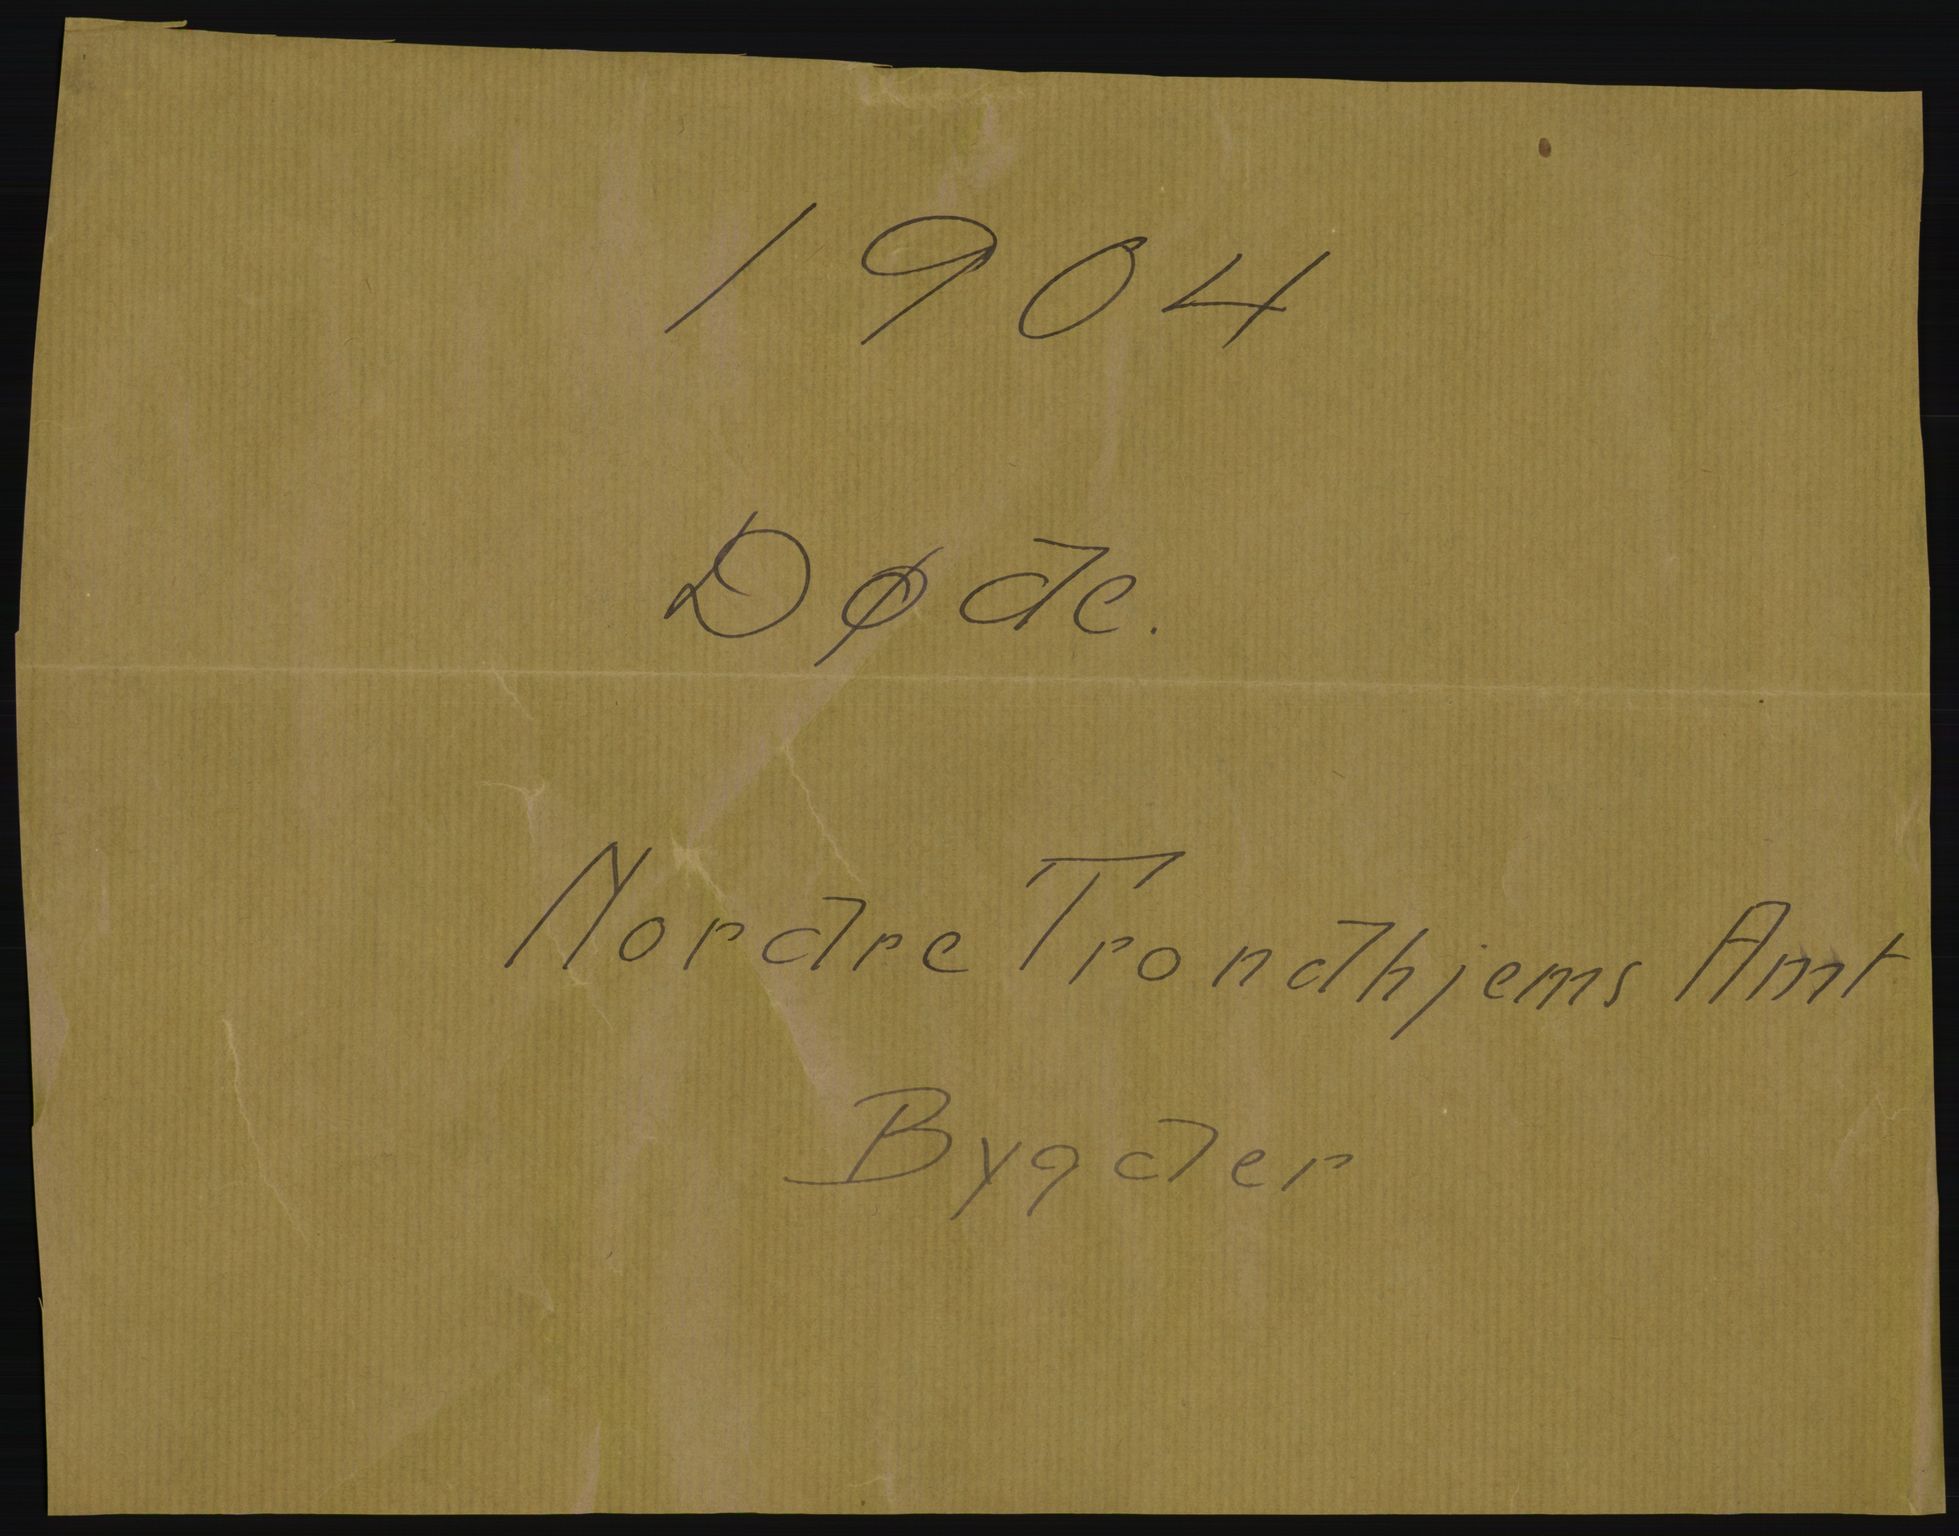 1904
Døde.
Nordre Trondhjems Amt
Bygder